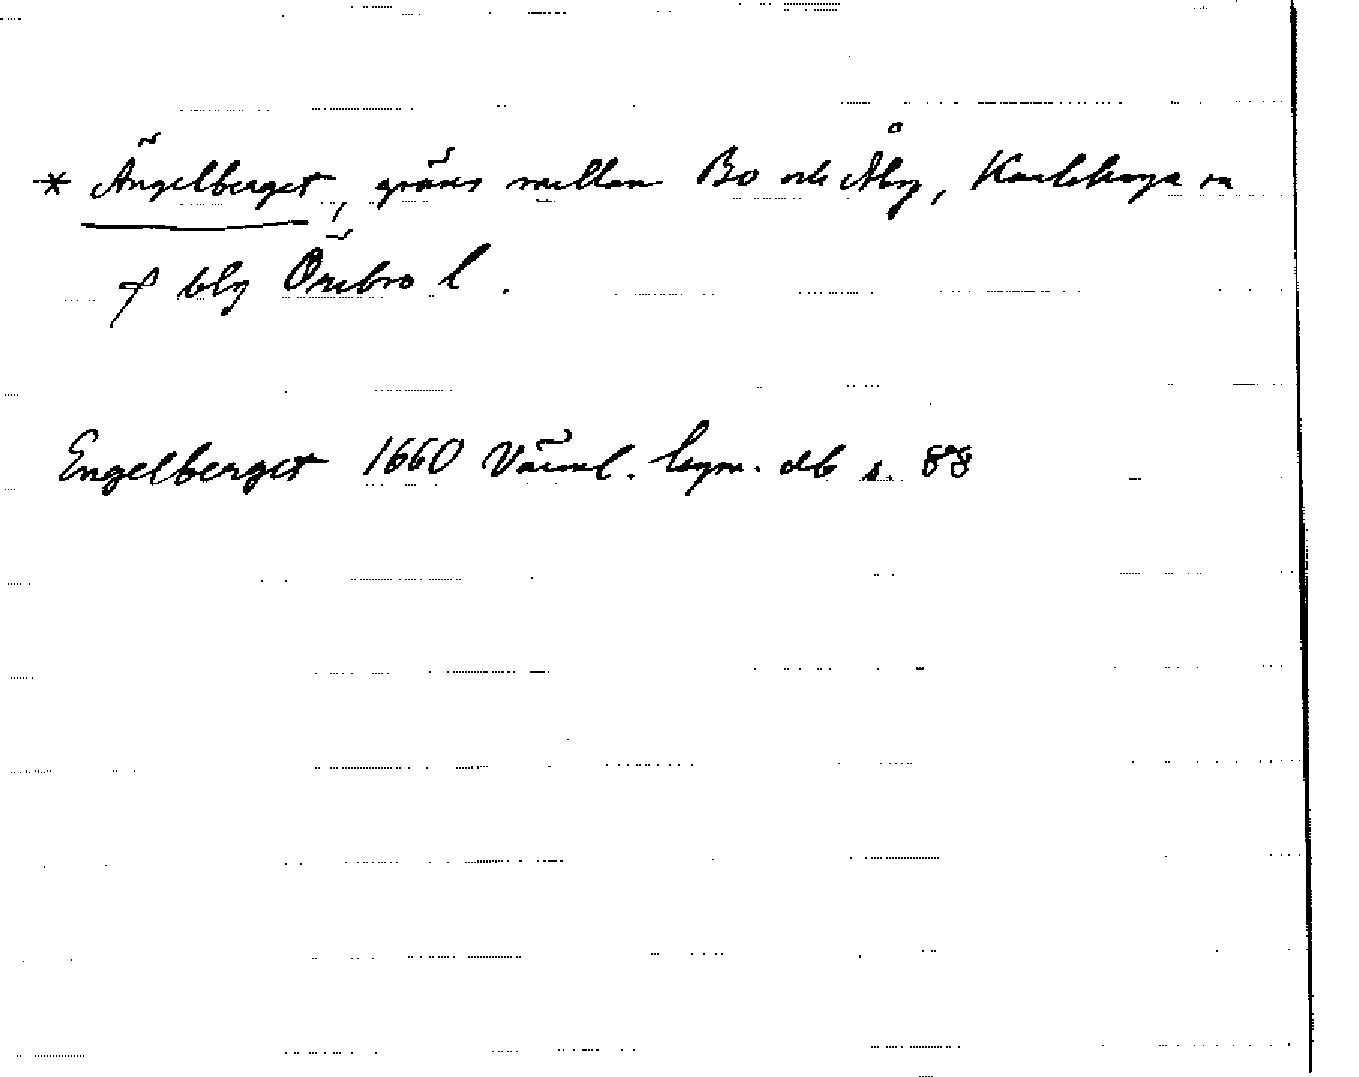 * Ängelberget, gräns mellan Bo och Åby, Karlskoga sn
f blg Örebro l.
Engelberget 1660 Värml. lagm. db s. 88